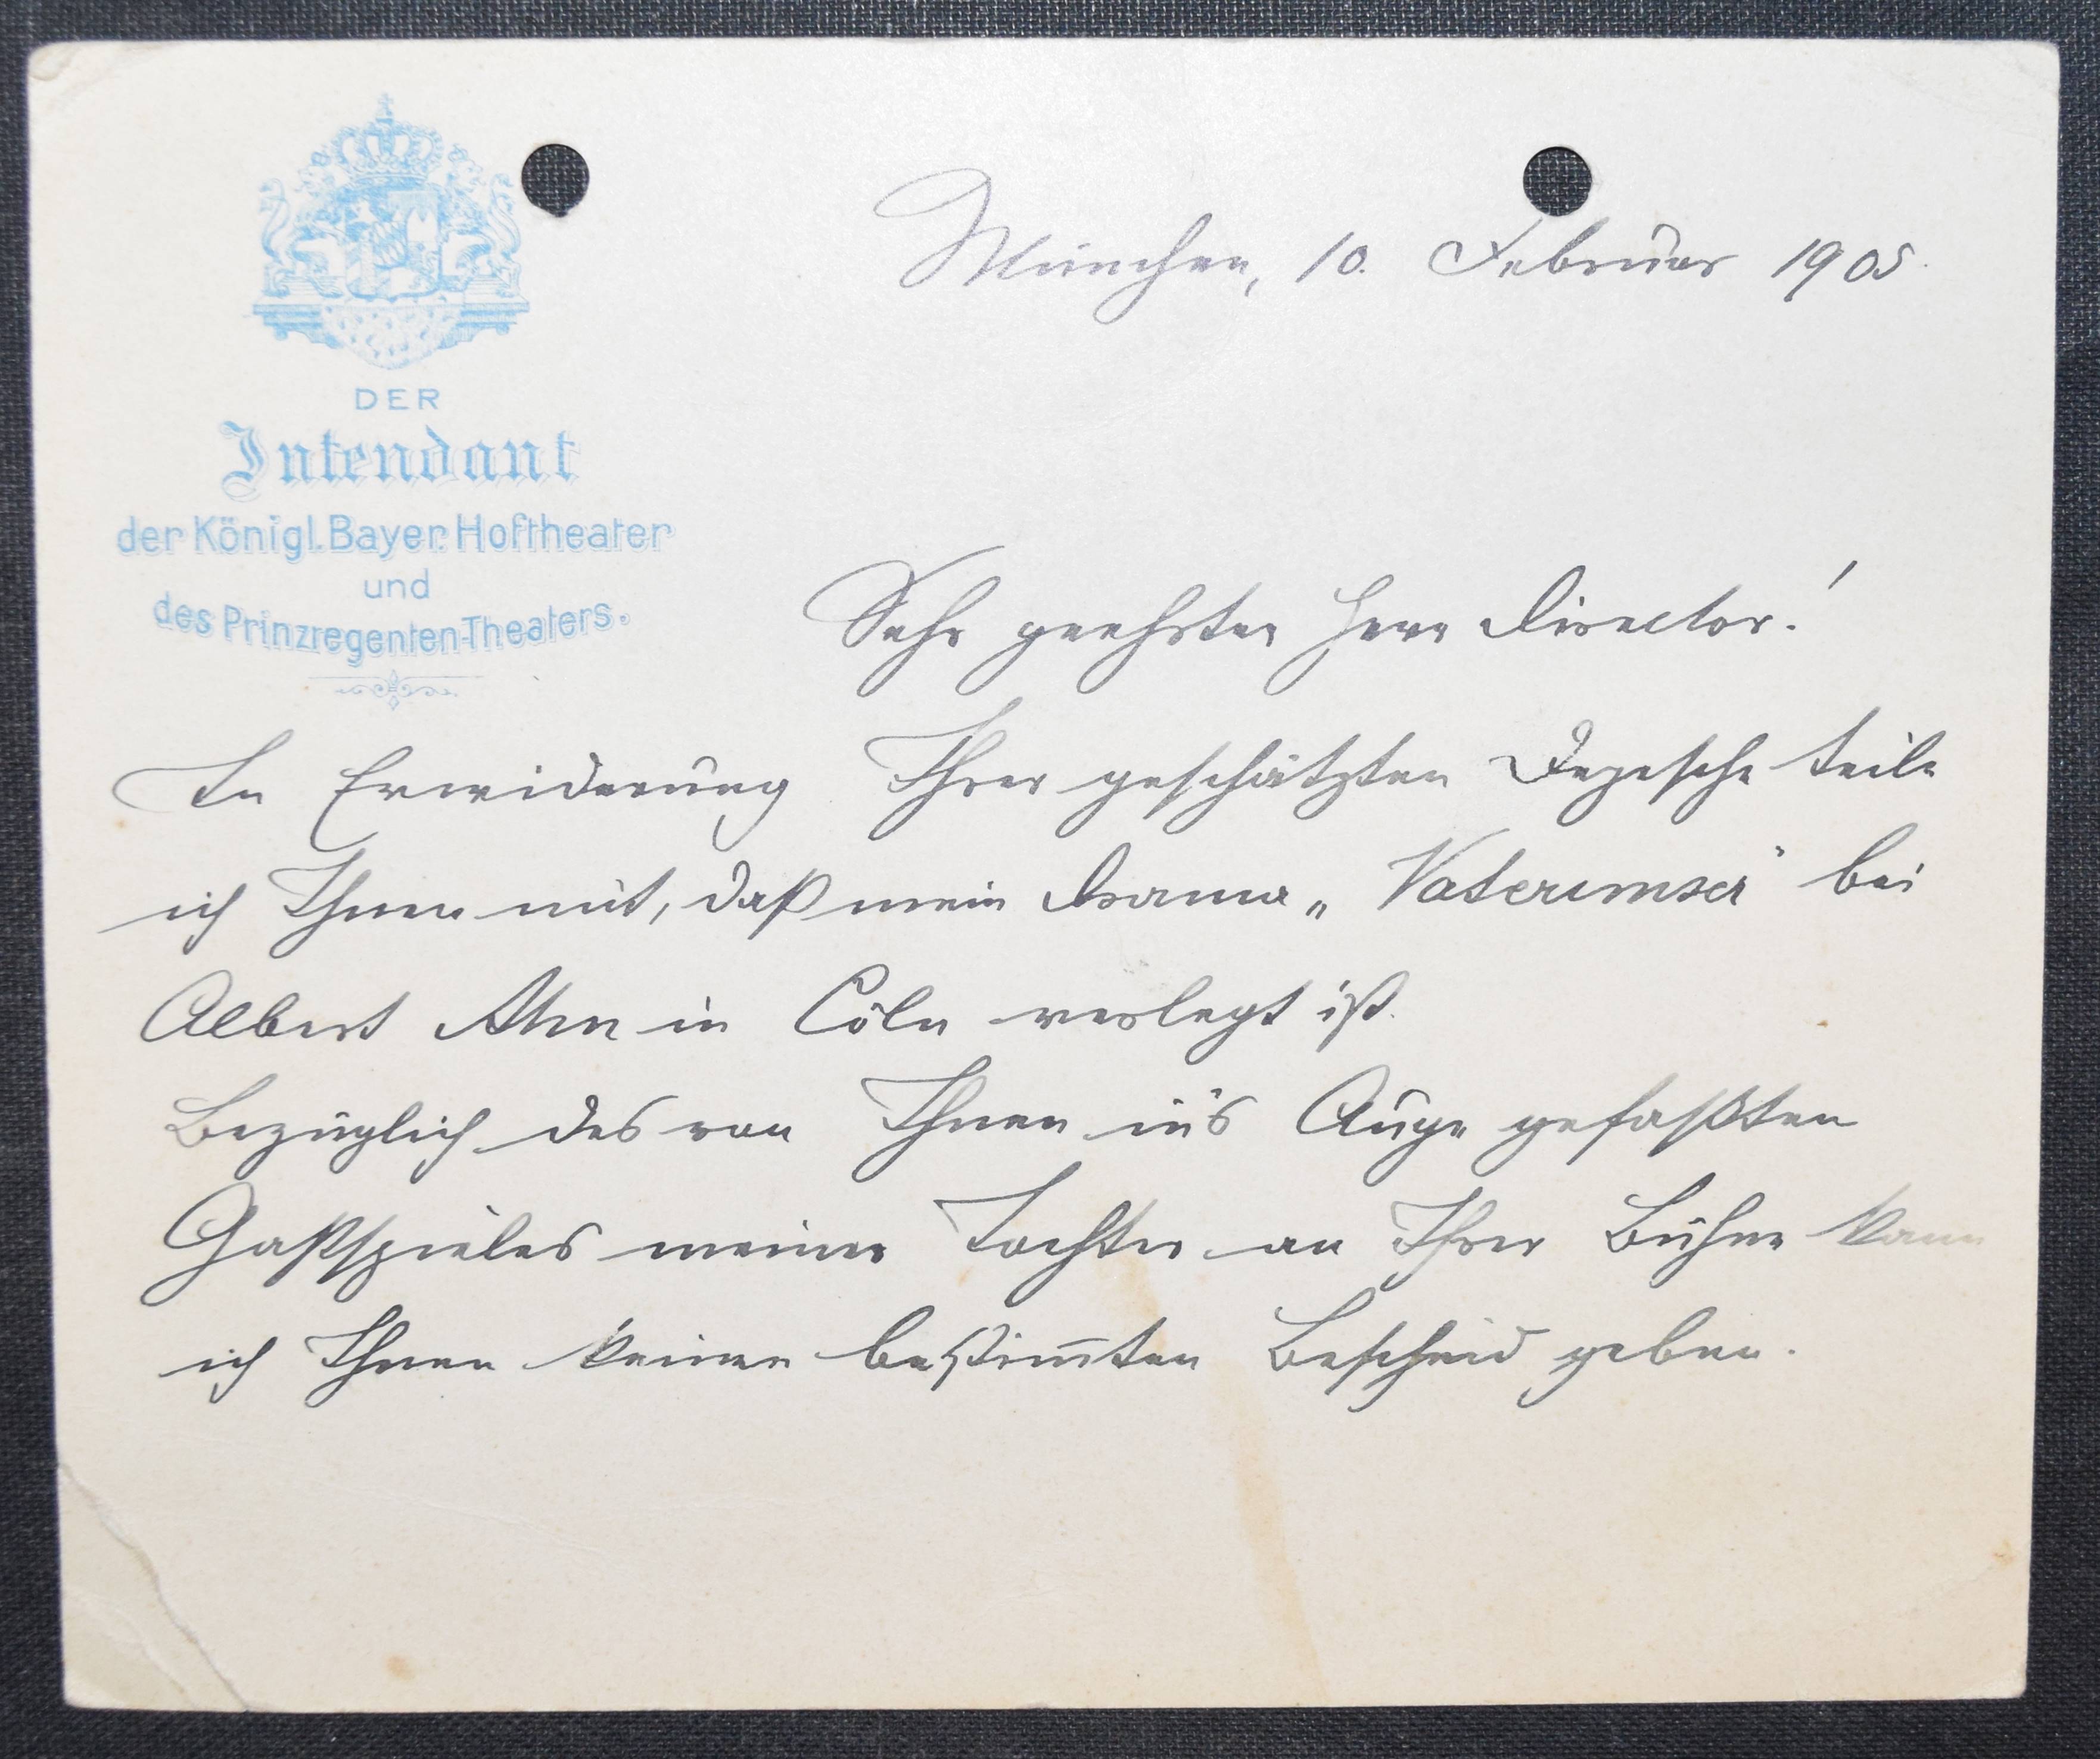 DER
Intendant
der Königl. Bayer. Hoftheater
und
des Prinzregenten-Theaters.
München, 10. Februar 1905.
Sehr geehrter Herr Director!
In Erwiderung Ihrer geschätzten Depesche teile
ich Ihnen mit, daß mein Drama „Vaterunser" bei
Albert Ahn in Cöln verlegt ist.
Bezüglich des von Ihnen in's Auge gefaßten
Gastspieles meiner Tochter an Ihrer Bühne kann
ich Ihnen keinen bestim̅ten Bescheid geben.